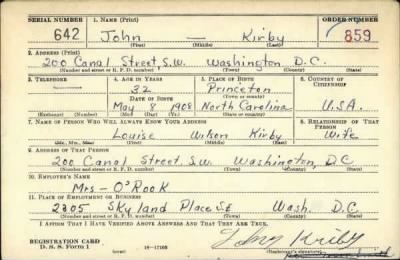 SERIAL NUMBER 1. NAME (Print) ORDER NUMBER
642 John — Kirby 859
(First) (Middle) (Last)
2. ADDRESS (Print)
200 Canal Street, S.W. Washington D.C.
(Number and street or R. F. D. number) (Town) (County) (State)
3. TELEPHONE 4. AGE IN YEARS 5. PLACE OF BIRTH 6. COUNTRY OF CITIZENSHIP
32 Princeton
DATE OF BIRTH (Town or county)
May 8 1908 North Carolina U.S.A.
(Exchange) (Number) (Mo.) (Day) (Yr.) (State or country)
7. NAME OF PERSON WHO WILL ALWAYS KNOW YOUR ADDRESS 8. RELATIONSHIP OF THAT PERSON
Louise Wilson Kirby Wife
(Mr., Mrs., Miss) (First) (Middle) (Last)
9. ADDRESS OF THAT PERSON
200 Canal Street, S.W. Washington, D.C
(Number and street or R. F. D. number) (Town) (County) (State)
10. EMPLOYER'S NAME
Mrs - O'Rook
11. PLACE OF EMPLOYMENT OR BUSINESS
2305 Skyland Place SE Wash. D.C.
(Number and street or R. F. D. number) (Town) (County) (State)
I AFFIRM THAT I HAVE VERIFIED ABOVE ANSWERS AND THAT THEY ARE TRUE.
REGISTRATION CARD
D. S. S. Form 1 (over) 16—17105 (Registrant's signature)
John Kirby